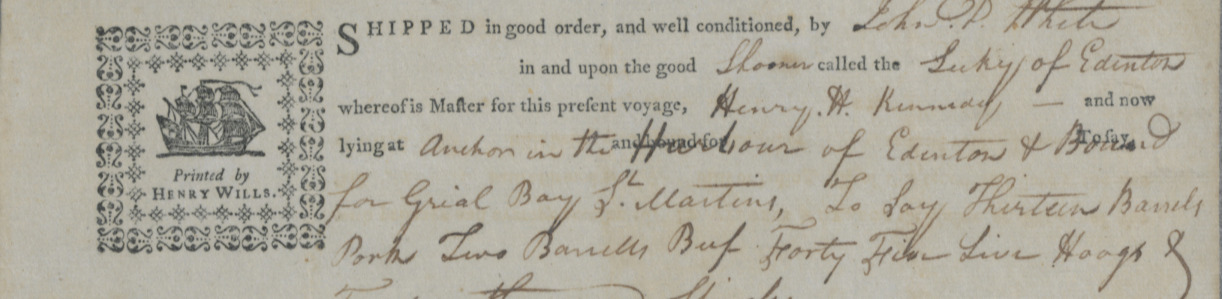 SHIPPED in good order, and well conditioned, by John P. White
in and upon the good Shooner called the Lukey of Edenton
whereof is Maſter for this preſent voyage, Henry. H. Kennedy — and now
lying at Anchor in the and bound for Harbour of Edenton & To ſay, Bound
for Grial Bay St. Martins, To Say Thirteen Barrels
Pork Two Barrells Beef Forty Five Live Hoags &
Printed by
HENRY WILLS.